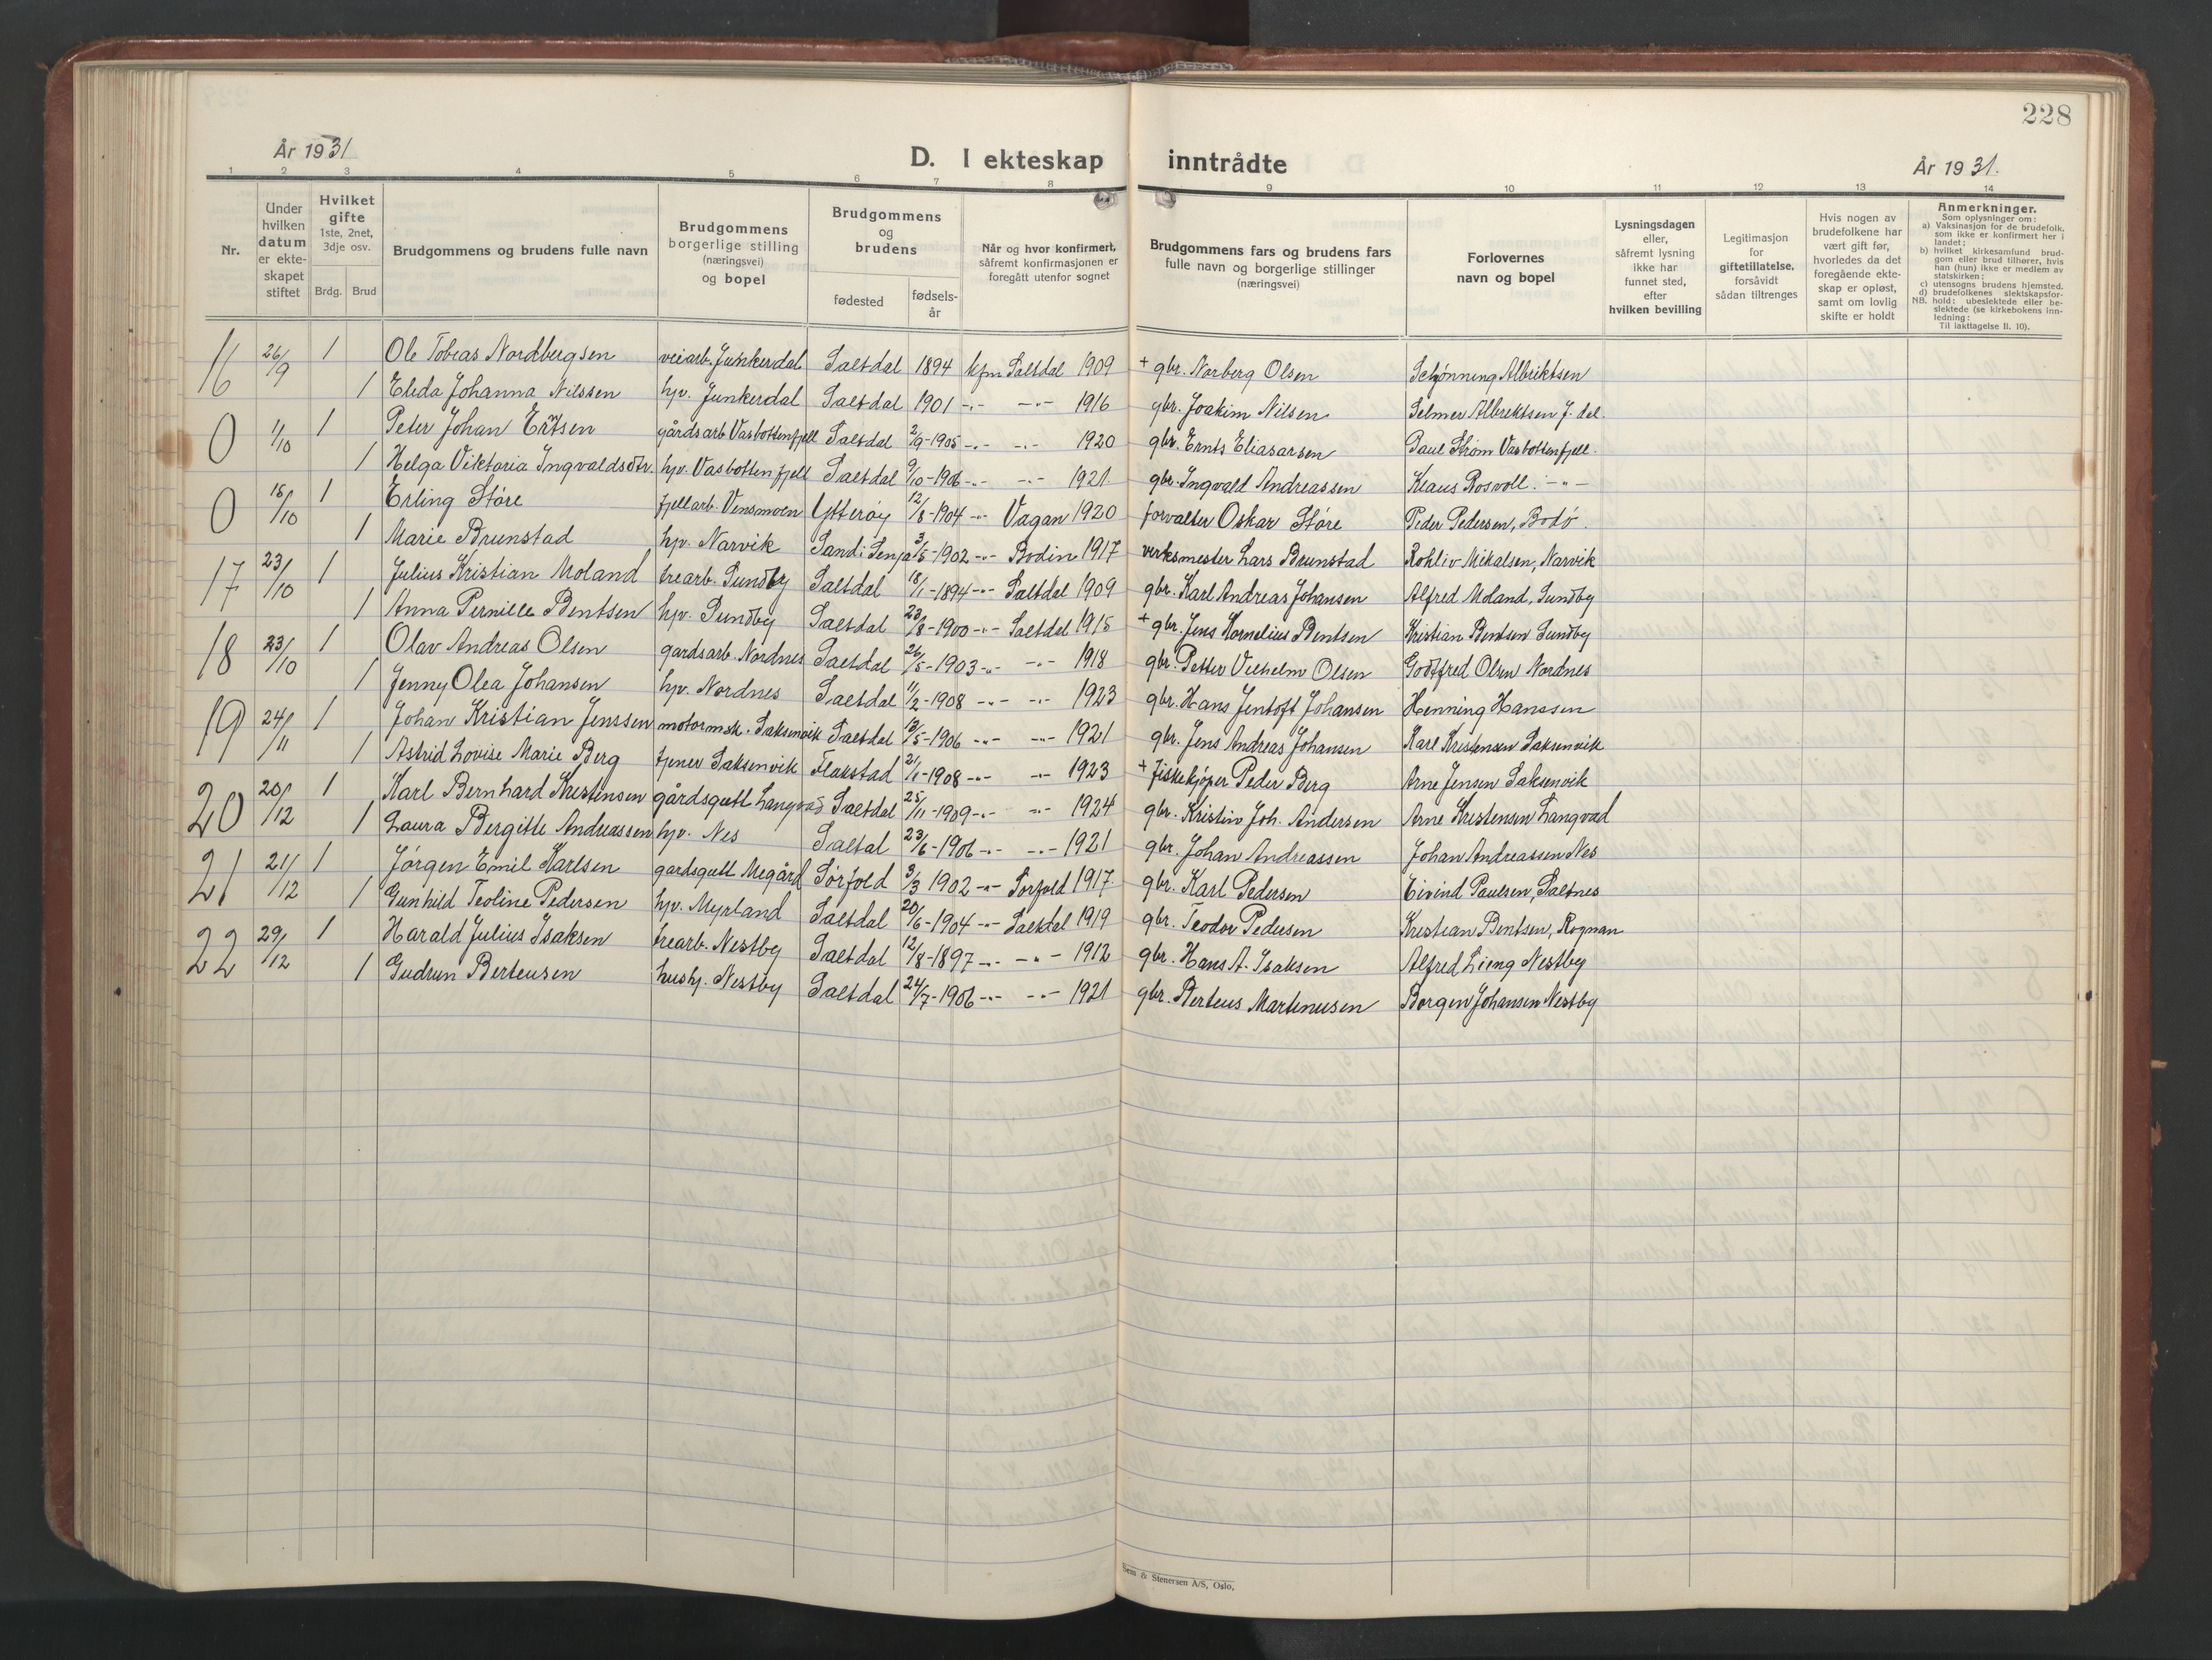 228
År 1931
D. I ekteskap inntrådte
År 1931.
1 2 3 4 5 6 7 8 9 10 11 12 13 14
Nr.
Under hvilken datum er ekteskapet stiftet
Hvilket gifte 1ste, 2net, 3dje osv.
Brdg. Brud
Brudgommens og brudens fulle navn
Brudgommens borgerlige stilling (næringsvei) og bopel
Brudgommens og brudens
fødested
fødselsår
Når og hvor konfirmert, såfremt konfirmasjonen er foregått utenfor sognet
Brudgommens fars og brudens fars fulle navn og borgerlige stillinger (næringsvei)
Forlovernes navn og bopel
Lysningsdagen eller, såfremt lysning ikke har funnet sted, efter hvilken bevilling
Legitimasjon for giftetillatelse, forsåvidt sådan tiltrenges
Hvis nogen av brudefolkene har vært gift før, hvorledes da det foregående ekteskap er opløst, samt om lovlig skifte er holdt
Anmerkninger.
Som oplysninger om:
a) Vaksinasjon for de brudefolk, som ikke er konfirmert her i landet;
b) hvilket kirkesamfund brudgom eller brud tilhører, hvis han (hun) ikke er medlem av statskirken;
c) utensogns brudens hjemsted.
d) brudefolkenes slektskapsforhold: ubeslektede eller beslektede (se kirkebokens innledning:
NB.
Til iakttagelse II. 10).
16 26/9 1 Ole Tobias Nordbergsen veiarb. Junkerdal Saltdal 1894 kfm Saltdal 1909 + gbr. Norberg Olsen Schjønning Albriktsen
1 Elida Johanna Nilssen hjv. Junkerdal Saltdal 1901 -"- -"- 1916 gbr. Joakim Nilsen Selmer Albrektsen J. dal
0 1/10 1 Peter Johan gårdsarb Vasbottenfjell Saltdal 2/9-1905 -"- -"- 1920 gbr. Ernts Eliasarsen Paul Strøm Vasbottenfjell.
1 Helga Viktoria Ingvaldsdtr. hjv. Vasbottenfjell Saltdal 9/10-1906 -"- -"- 1921 gbr. Ingvald Andreassen Klaus Rosvoll. -"-
0 18/10 1 Erling Støre fjellarb. Vensmoen Ytterøy 12/8-1904 -"- Vagan 1920 forvalter Oskar Støre Peder Pedersen, Bodø.
1 Marie Brunstad hjv. Narvik Sand i Senja 3/5-1902 -"- Bodin 1917 verksmester Lars Brunstad Mikalsen, Narvik
17 23/10 1 Julius Kristian Moland trearb. Sundby Saltdal 18/1-1894 -"- Saltdal 1909 gbr. Karl Andreas Johansen Alfred Moland, Sundby
1 Anna Pernille Bentsen hjv. Sundby Saltdal 23/8-1900 -"- Saltdal 1915 + gbr. Jens Kornelius Bentsen Kristian Bentsen Sundby
18 23/10 1 Olav Andreas Olsen gardsarb. Nordnes Saltdal 26/5-1903 -"- -"- 1918 gbr. Petter Vilhelm Olsen Godtfred Olsen Nordnes
1 Jenny Olea Johansen hjv. Nordnes Saltdal 11/2-1908 -"- -"- 1923 gbr. Hans Jentoft Johansen Henning Hanssen
19 24/11 1 Johan Kristian Jenssen motormsk. Saksenvik Saltdal 13/5-1906 -"- -"- 1921 gbr. Jens Andreas Johansen Karl Kristensen Saksenvik
1 Astrid Lovise Marie Berg tjener Saksenvik Flakstad 21/1-1908 -"- -"- 1923 + fiskekjøper Peder Berg Arne Jensen Saksenvik
20 20/12 1 Karl Bernhard Kristensen gårdsgutt Langvad Saltdal 25/11-1909 -"- -"- 1924 gbr. Kristin Joh. Andersen Arne Kristensen Langvad
1 Laura Bergitte Andreassen hjv. Nes Saltal 23/6-1906 -"- -"- 1921 gbr. Johan Andreassen Johan Andreassen Nes
21 21/12 1 Jørgen Emil Karlsen gardsgutt Megård Sørfold 3/3 1902 -"- Sørfold 1917 gbr. Karl Pedersen Eivind Paulsen, Saltnes
1 Gunhild Teoline Pedersen hjv. Myrland Saltdal 20/6-1904 -"- Saltdal 1919 gbr. Teodor Pedersen Kristian Bentsen, Rognan
22 29/12 1 Harald Julius Isaksen trearb. Nestby Saltdal 12/8-1897 -"- -"- 1912 gbr. Hans A. Isaksen Alfred Lieng Nestby
1 Gudrun Berteusen hushj. Nestby Saltdal 24/7-1906 -"- -"- 1921 gbr. Berteus Martinusen Borgen Johansen Nestby
Sem & Stenersen A/S, Oslo.